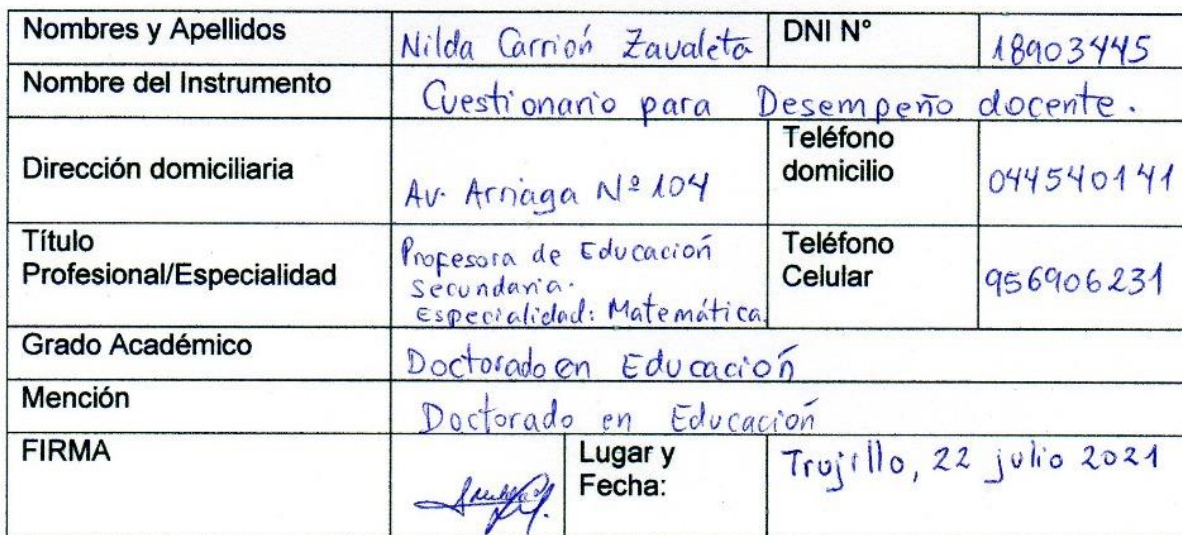 Nombres y Apellidos Nilda Carrión Zavaleta DNI N° 18903445
Nombre del Instrumento Cuestionario para Desempeño docente.
Dirección domiciliaria Av. Arriaga Nº 104 Teléfono domicilio 044540141
Título Profesional/Especialidad Profesora de Educación
Secundaria.
Especialidad: Matemática. Teléfono Celular 956906231
Grado Académico Doctorado en Educación
Mención Doctorado en Educación
FIRMA Lugar y Fecha: Trujillo, 22 julio 2021